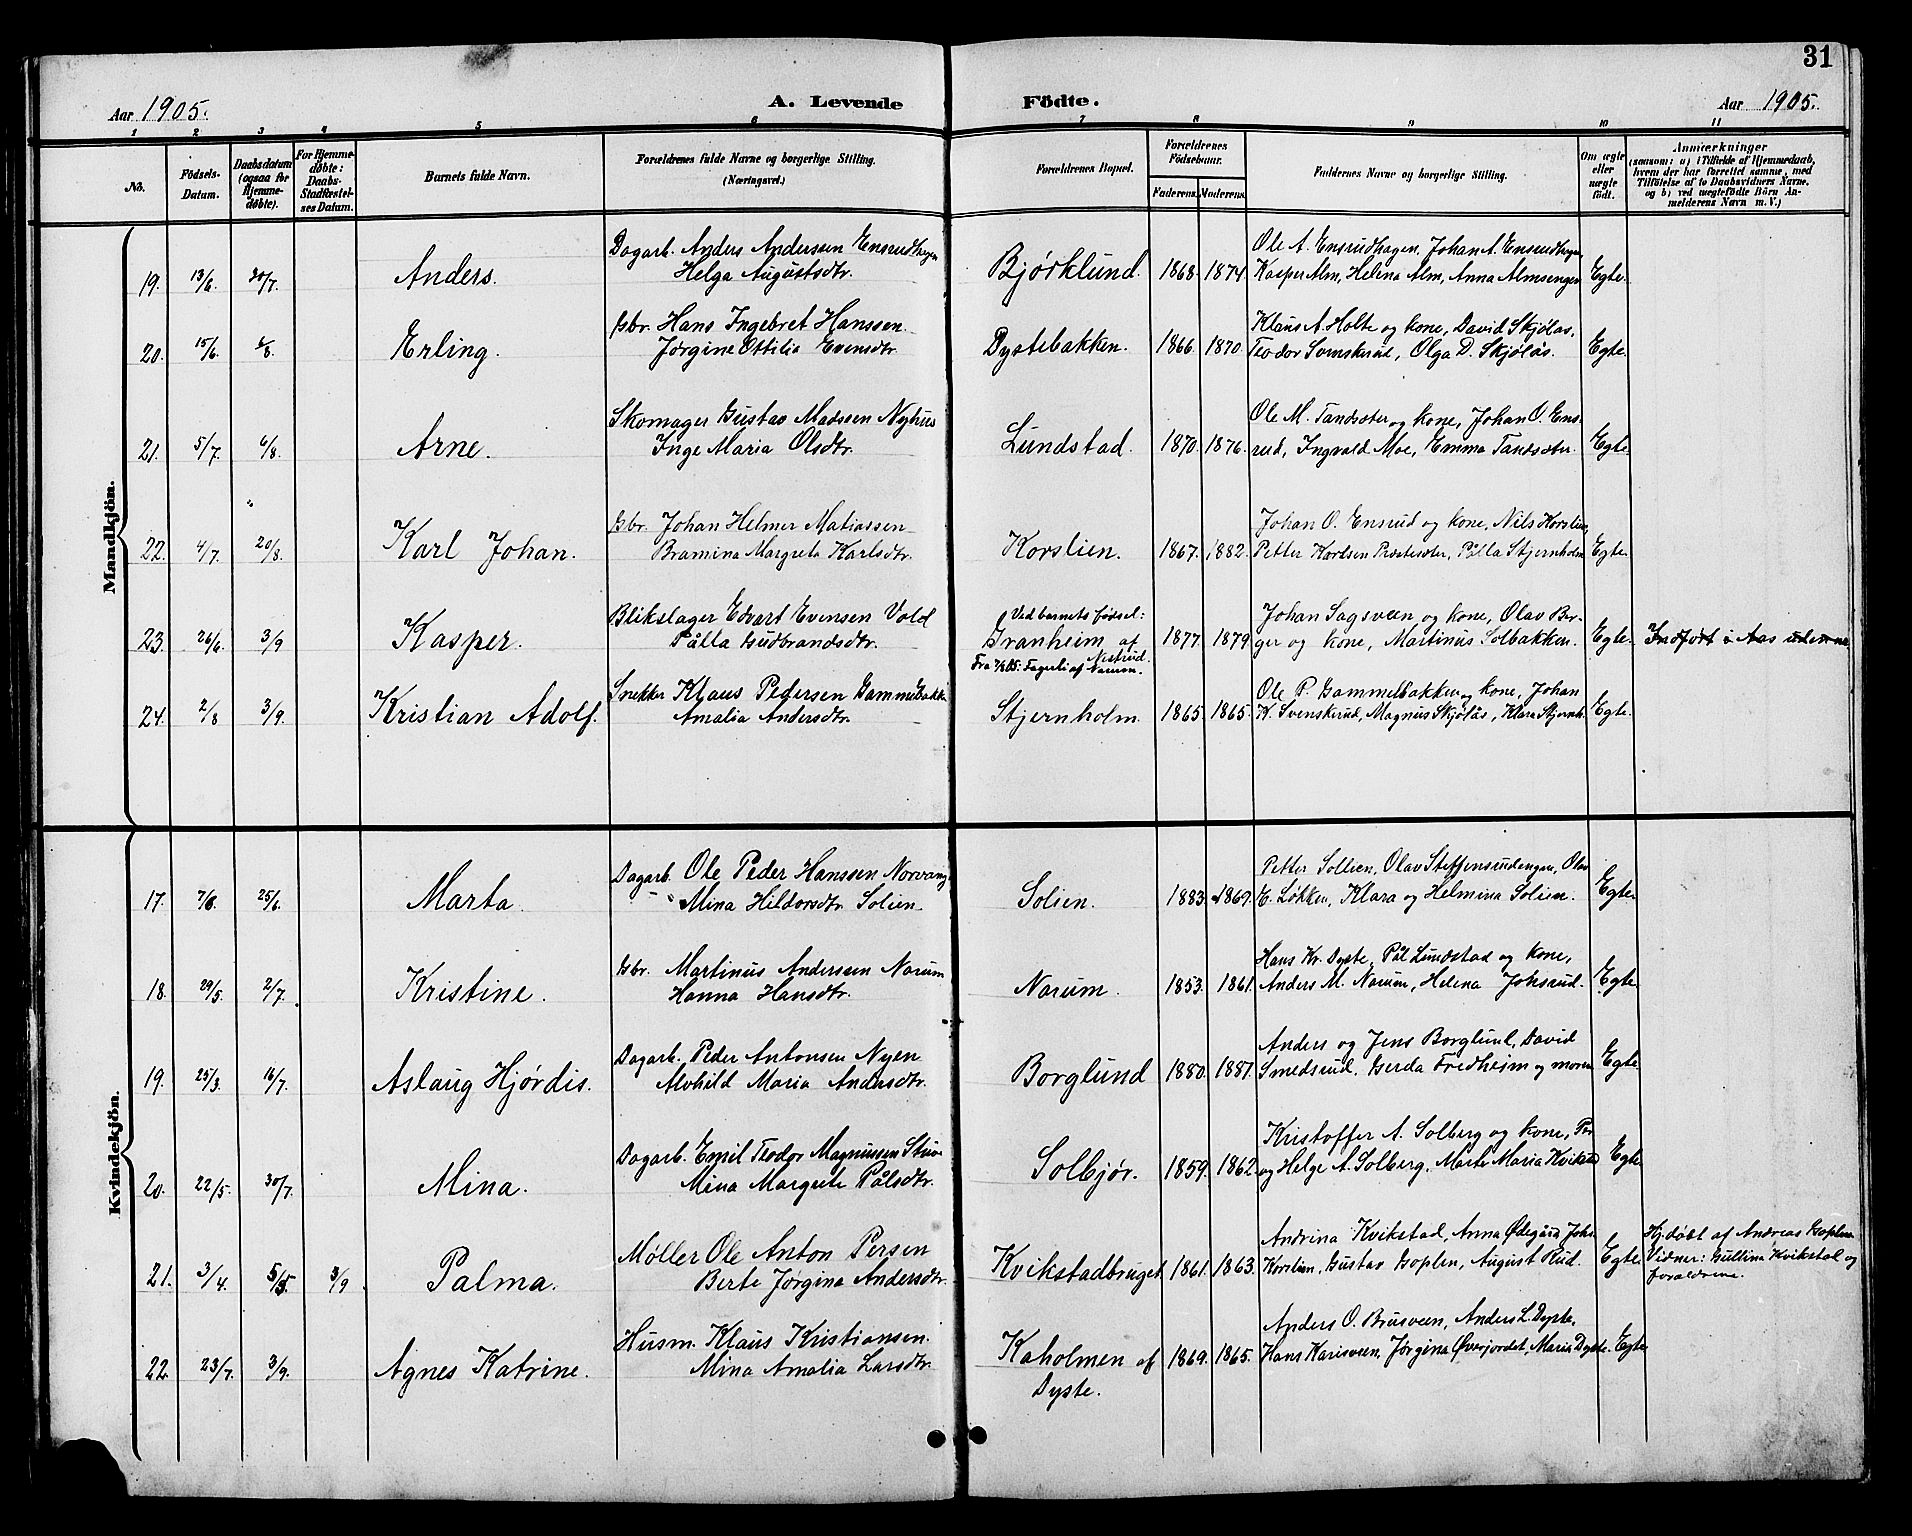 31
Aar 1905.
A. Levende
Födte.
Aar 1905.
1 2 3 4 5 6 7 8 9 10 11
No.
Födsels-
Datum.
Daabsdatum
(ogsaa for
Hjemme-
døbte).
For Hjemme-
døbte:
Daabs-
Stadfæstel-
ses Datum.
Barnets fulde Navn.
Forældrenes fulde Navne og borgerlige Stilling.
(Næringsvei.)
Forældrenes Bopæl.
Forældrenes
Fødselsaar.
Faderens. Moderens.
Faddernes Navne og borgerlige Stilling.
Om ægte
eller
uægte
født.
Anmærkninger
(saasom: a) i Tilfælde af Hjemmedaab,
hvem der har forrettet samme, med
Tilføielse af to Daabsvidners Navne,
og b) ved uægtefødte Börn An-
melderens Navn m. V.)
Mandkjön.
19. 13/6. 30/7. Anders.
Dagarb. Anders Anderssen Ensrudhagen
Helga Augustsdtr.
Bjørklund. 1868. 1874.
Ole A. Ensrudhagen, Johan A. Ensrudhagen
Kasper Alm, Helena Alm, Anna Almsengen
Egte.
20. 15/6. 6/8. Erling.
Gbr. Hans Ingebret Hanssen
Jørgine Ottilia Evensdtr.
Dystebakken. 1866. 1870.
Klaus A. Holte og kone, David Skjølås,
Teodor Svenskerud, Olga D. Skjølås.
Egte.
21. 5/7. 6/8. Arne.
Skomager Gustav Madssen Nyhus
Inge Maria Olsdtr.
Lundstad. 1870. 1876.
Ole M. Tandsæter og kone, Johan O. Ens-
rud, Ingvald Moe, Emma Tandsæter.
Egte.
22. 4/7. 20/8. Karl Johan.
Gbr. Johan Helmer Matiassen
Bramina Margrete Karlsdtr.
Korslien. 1867. 1882.
Johan O. Ensrud og kone, Nils Korslien,
Petter Karlsen Præstesæter, Pålla Stjernholm
Egte.
23. 26/6. 3/9 Kasper.
Blikslager Edvart Evensen Vold
Pålla Gudbrandsdtr.
Ved barnets fødsel:
Granheim af
Nistrud.
Fagerli af Narum.
1877. 1879
Johan Sagsveen og kone, Olav Ber-
ger og kone, Martinus Solbakken.
Egte.
Indført i Aas
24. 2/8 3/9. Kristian Adolf.
Snekker Klaus Pedersen Gammelbakke
Amalia Andersdtr.
Stjernholm. 1865 1865.
Ole P. Gammelbakken og kone, Johan
K. Svenskerud, Magnus Skjølås, Klara Stjernh.
Egte.
Kvindekjön.
17. 7/6. 25/6. Marta.
Dagarb. Ole Peder Hanssen Norvang
Mina Hildorsdtr. Solien.
Solien. 1883. 1869.
Petter Sollien, Olav Steffensrudengen, Olav
E. Løkken, Klara og Helmina Solien.
Egte.
18. 29/5. 2/7. Kristine.
Gbr. Martinus Anderssen Narum
Hanna Hansdtr.
Narum. 1853. 1861.
Hans Kr. Dyste, Pål Lundstad og kone,
Anders M. Narum, Helena Johsrud.
Egte
19. 25/3. 16/7. Aslaug Hjørdis.
Dagarb. Peder Antonsen Nyen
Alvhild Maria Andersdtr.
Borglund 1880. 1881.
Anders og Jens Borglund, David
Smedsrud, Gerda Fredheim og moren
Egte
20. 22/5. 30/7. Mina.
Dagarb. Emil Teodor Magnussen
Mina Margrete Pålsdtr.
Solbjør. 1859. 1862.
Kristoffer A. Solberg og kone, Per
og Helge A. Solberg, Marte Maria Kvikstad
Egte
21. 3/4. 5/5. 3/9. Palma.
Møller Ole Anton Persen
Berte Jørgina Andersdtr.
Kvikstadbruget 1861. 1863.
Andrina Kvikstad, Anna Ødegård, Johs.
Korslien, Gustav Goplen, August Rud.
Egte
Hj.døbt af Andreas Goplen
Vidner: Gullina Kvikstad og
forældrene.
22. 23/7. 3/9. Agnes Katrine.
Husm. Klaus Kristiansen.
Mina Amalia Larsdtr.
Kaholmen af
Dyste.
1869. 1865.
Anders O. Brusveen, Anders L. Dyste,
Hans Karisveen, Jørgina Øverjordet, Maria Dyste.
Egte.